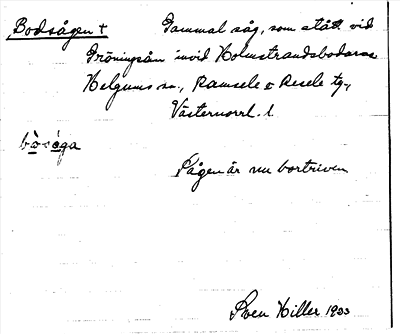 Bodsågen +
Gammal såg, som stått vid
Gröningsån invid Holmstrandsbodarna
Helgums sn., Ramsele o Resele tg.,
Västernorrl. l.
bòsòga
Sågen är nu bortriven
Sven Hiller 1933